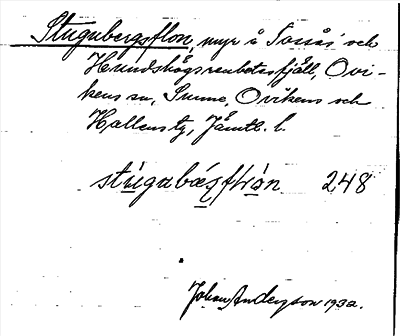 Stugubergsflon, myr å Sossås' och
Hundshögsrenbetesfjäll, Ovi-
kens sn, Sunne, Ovikens och
Hallens tg, Jämtl. l.
stúgubǽṣfḷọn 248
Johan Anderzson 1932.